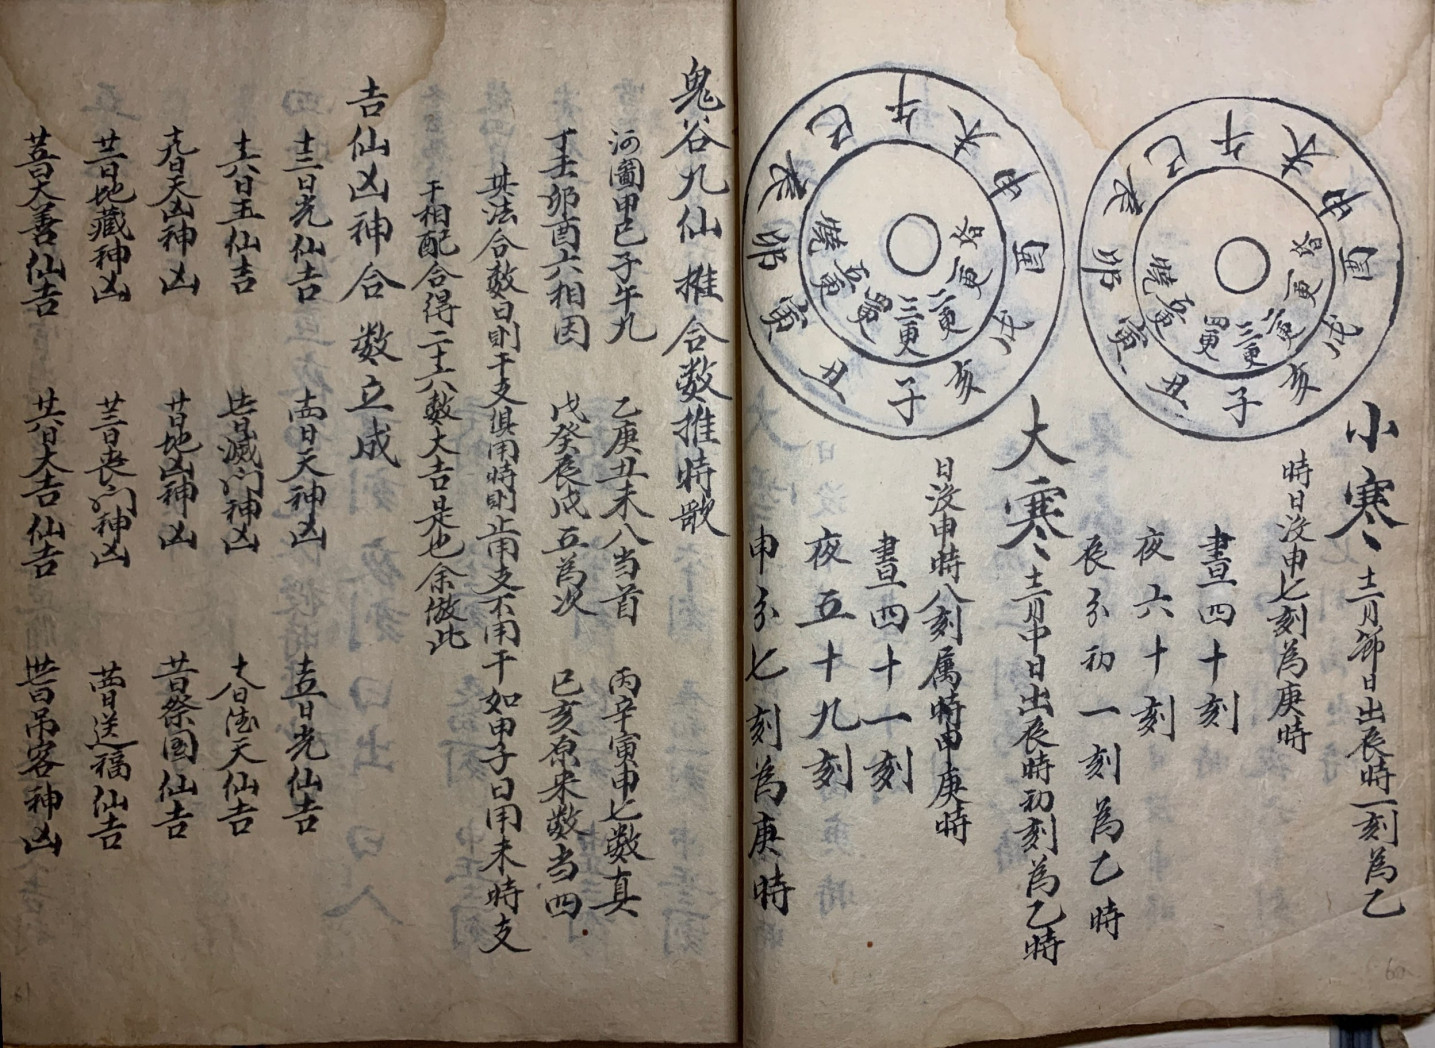 小寒、十二月節日出辰時一刻為乙
時日沒申七刻為庚時
晝四十刻
夜六十刻
辰分初一刻為乙時
午未申酉戌亥子丑寅卯辰巳
昏一更二更三更四更五更曉
大寒、十二月中日出辰時初刻為乙時
日沒申時八刻属時申庚時
晝四十一刻
夜五十九刻
申分七刻為庚時
午未申酉戌亥子丑寅卯辰巳
昏一更二更三更四更五更曉
鬼谷九仙推合数推時歌
河圖甲己子午九 乙庚丑未八当首 丙辛寅申七数真
丁壬卯酉六相因 戊癸辰戌五為次 巳亥原来数当四
其法合数日則干支俱用時則止用支不用干如甲子日用未時支
干相配合得二十六数大吉是也余倣此
吉仙凶神合数立成
十三日光仙吉 十四日天神凶 十五日光仙吉
十六日玉仙吉 十七日滅门神凶 十八日天仙吉
十九日天凶神凶 廿日地凶神凶 廿一日祭國仙吉
廿二日地藏神凶 廿三日喪门神凶 廿四日送福仙吉
廿五日大善仙吉 廿六日大吉仙吉 廿七日吊客神凶